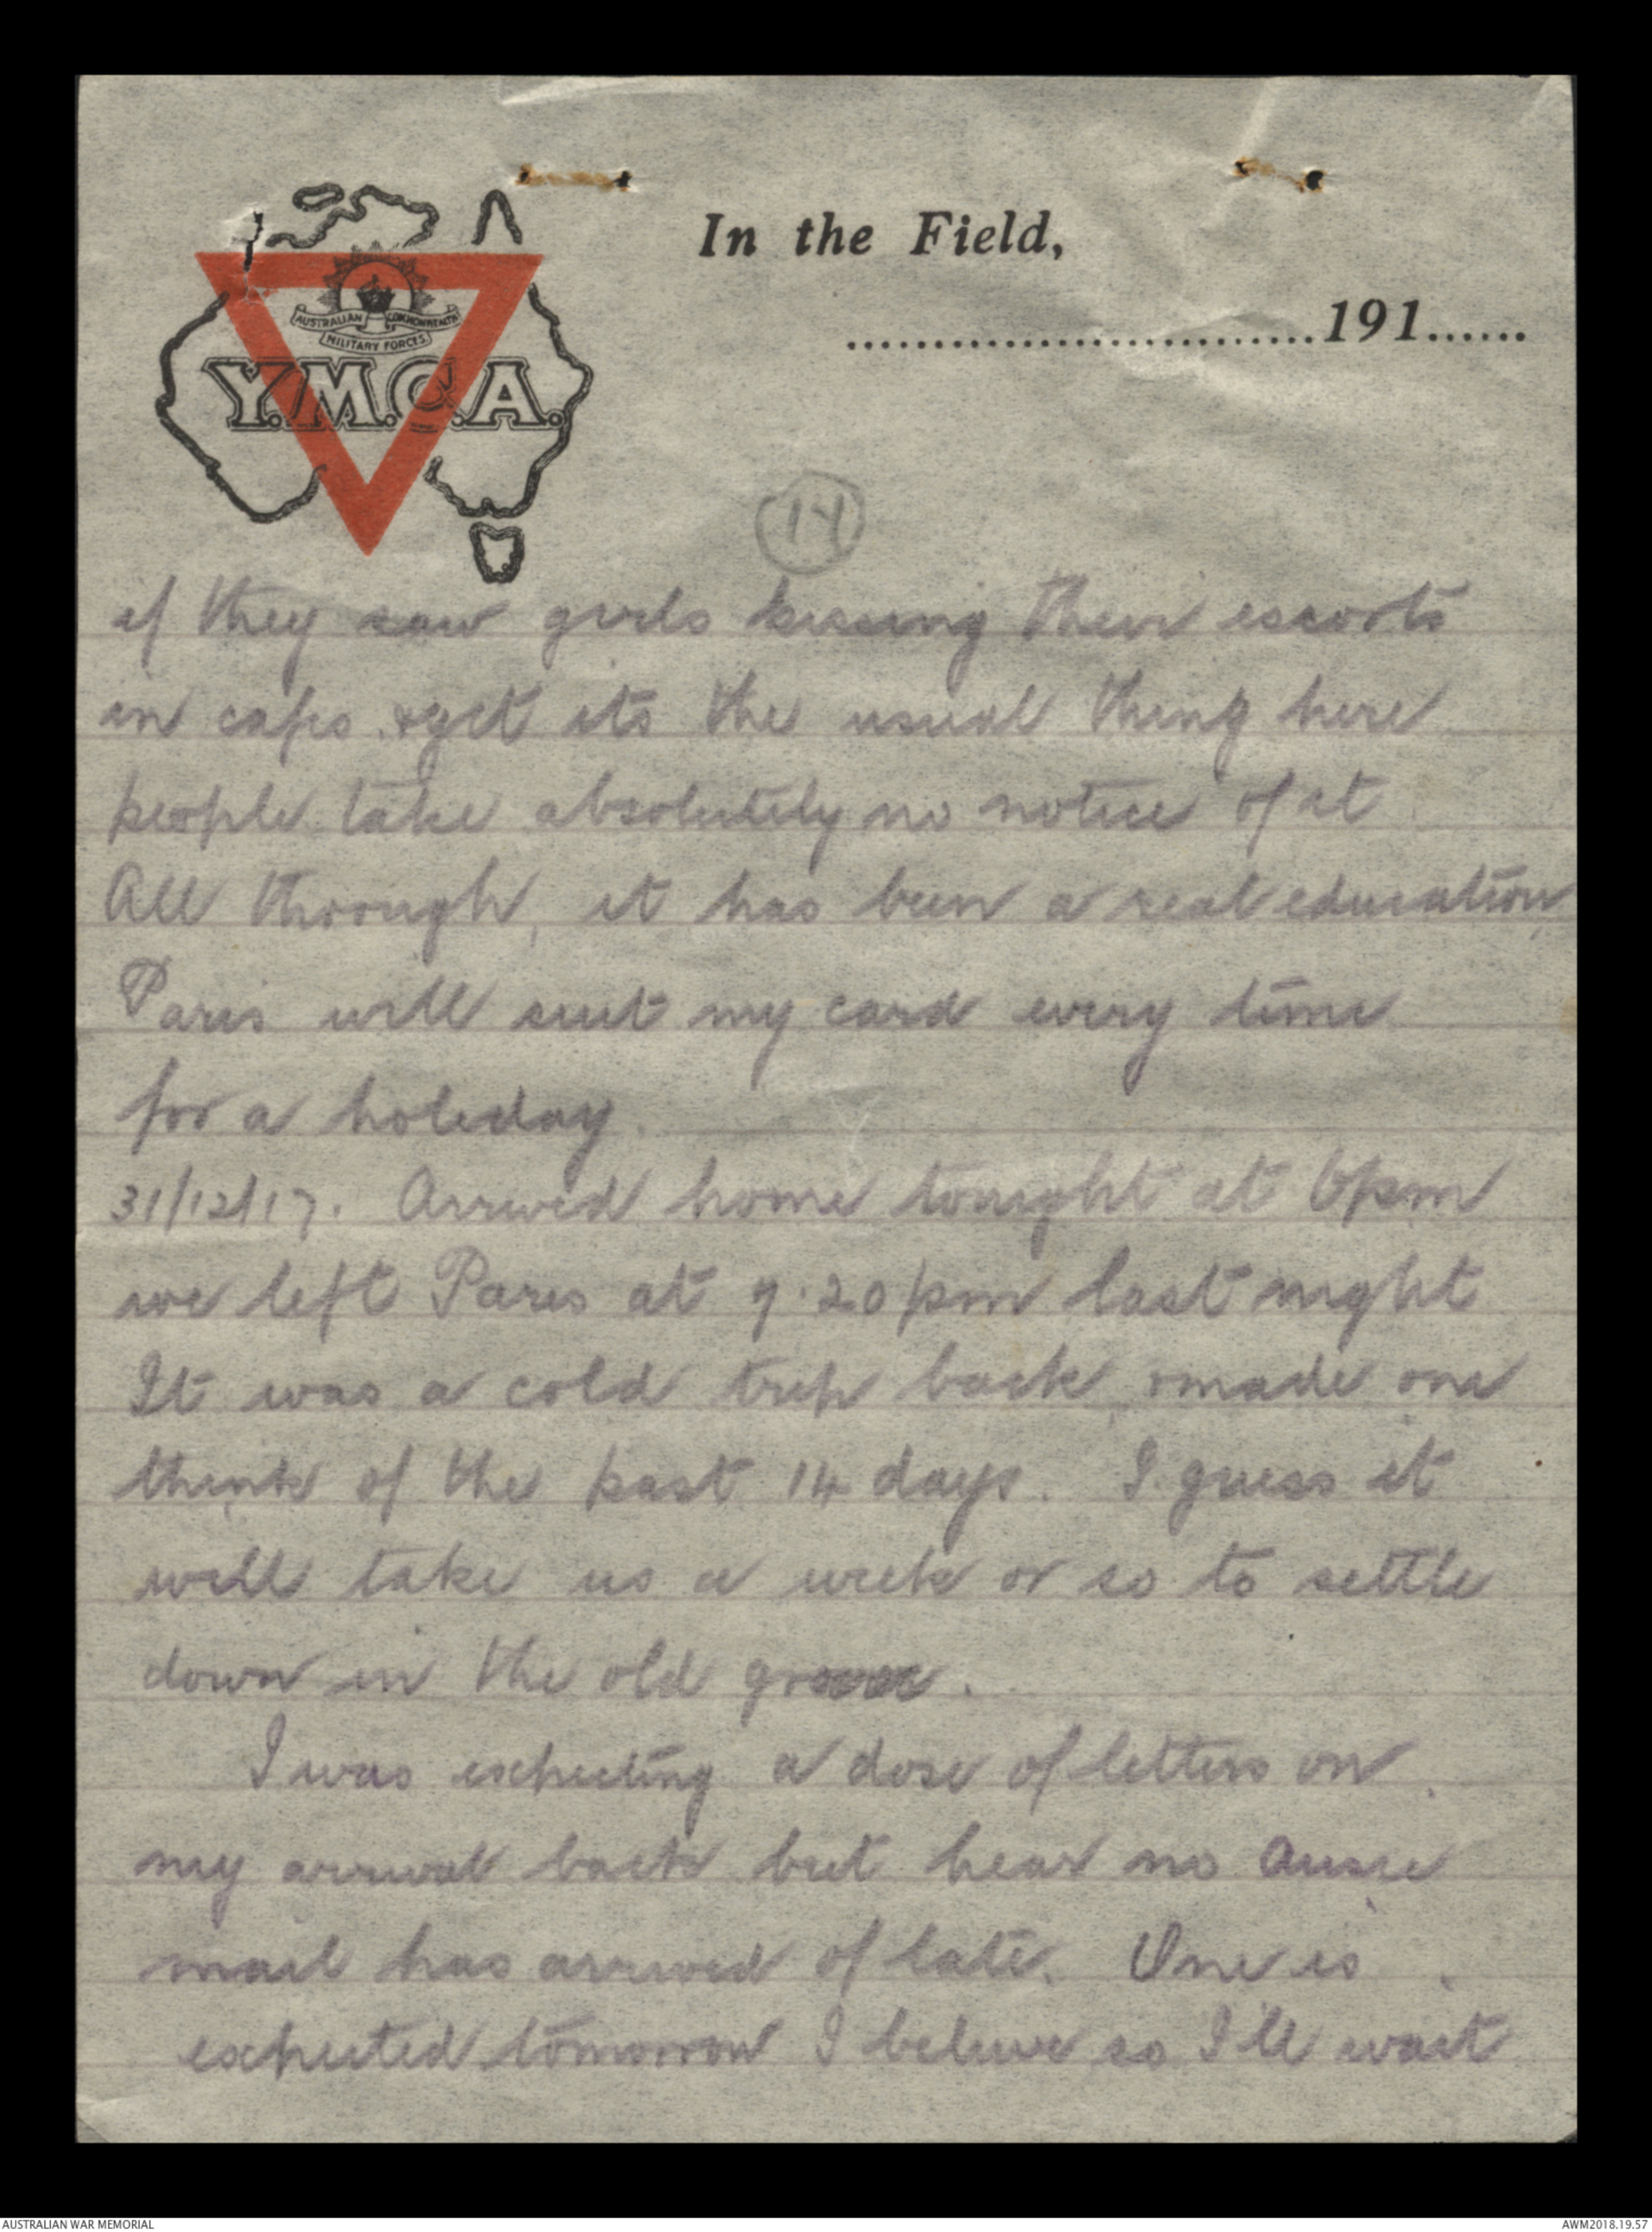 In the Field,
............................191......
AUSTRALIAN COMMONWEALTH
MILITARY FORCES
Y.M.C.A.
14
if they saw girls kissing their escorts
in cafes. & yet its the usual thing here
people take absolutely no notice of it
All through, it has been a real education,
Paris will suit my card every time
for a holiday.
31/12/17. Arrived home tonight at 6pm
we left Paris at 9.20pm last night
It was a cold trip back, & made one
think of the past 14 days. I guess it
will take us a week or so to settle
down in the old groove.
I was expecting a dose of letters on
my arrival back but hear no Ausie
mail has arrived of late. One is
expected tomorrow I believe so I'll wait
AUSTRALIAN WAR MEMORIAL
AWM2018.19.57